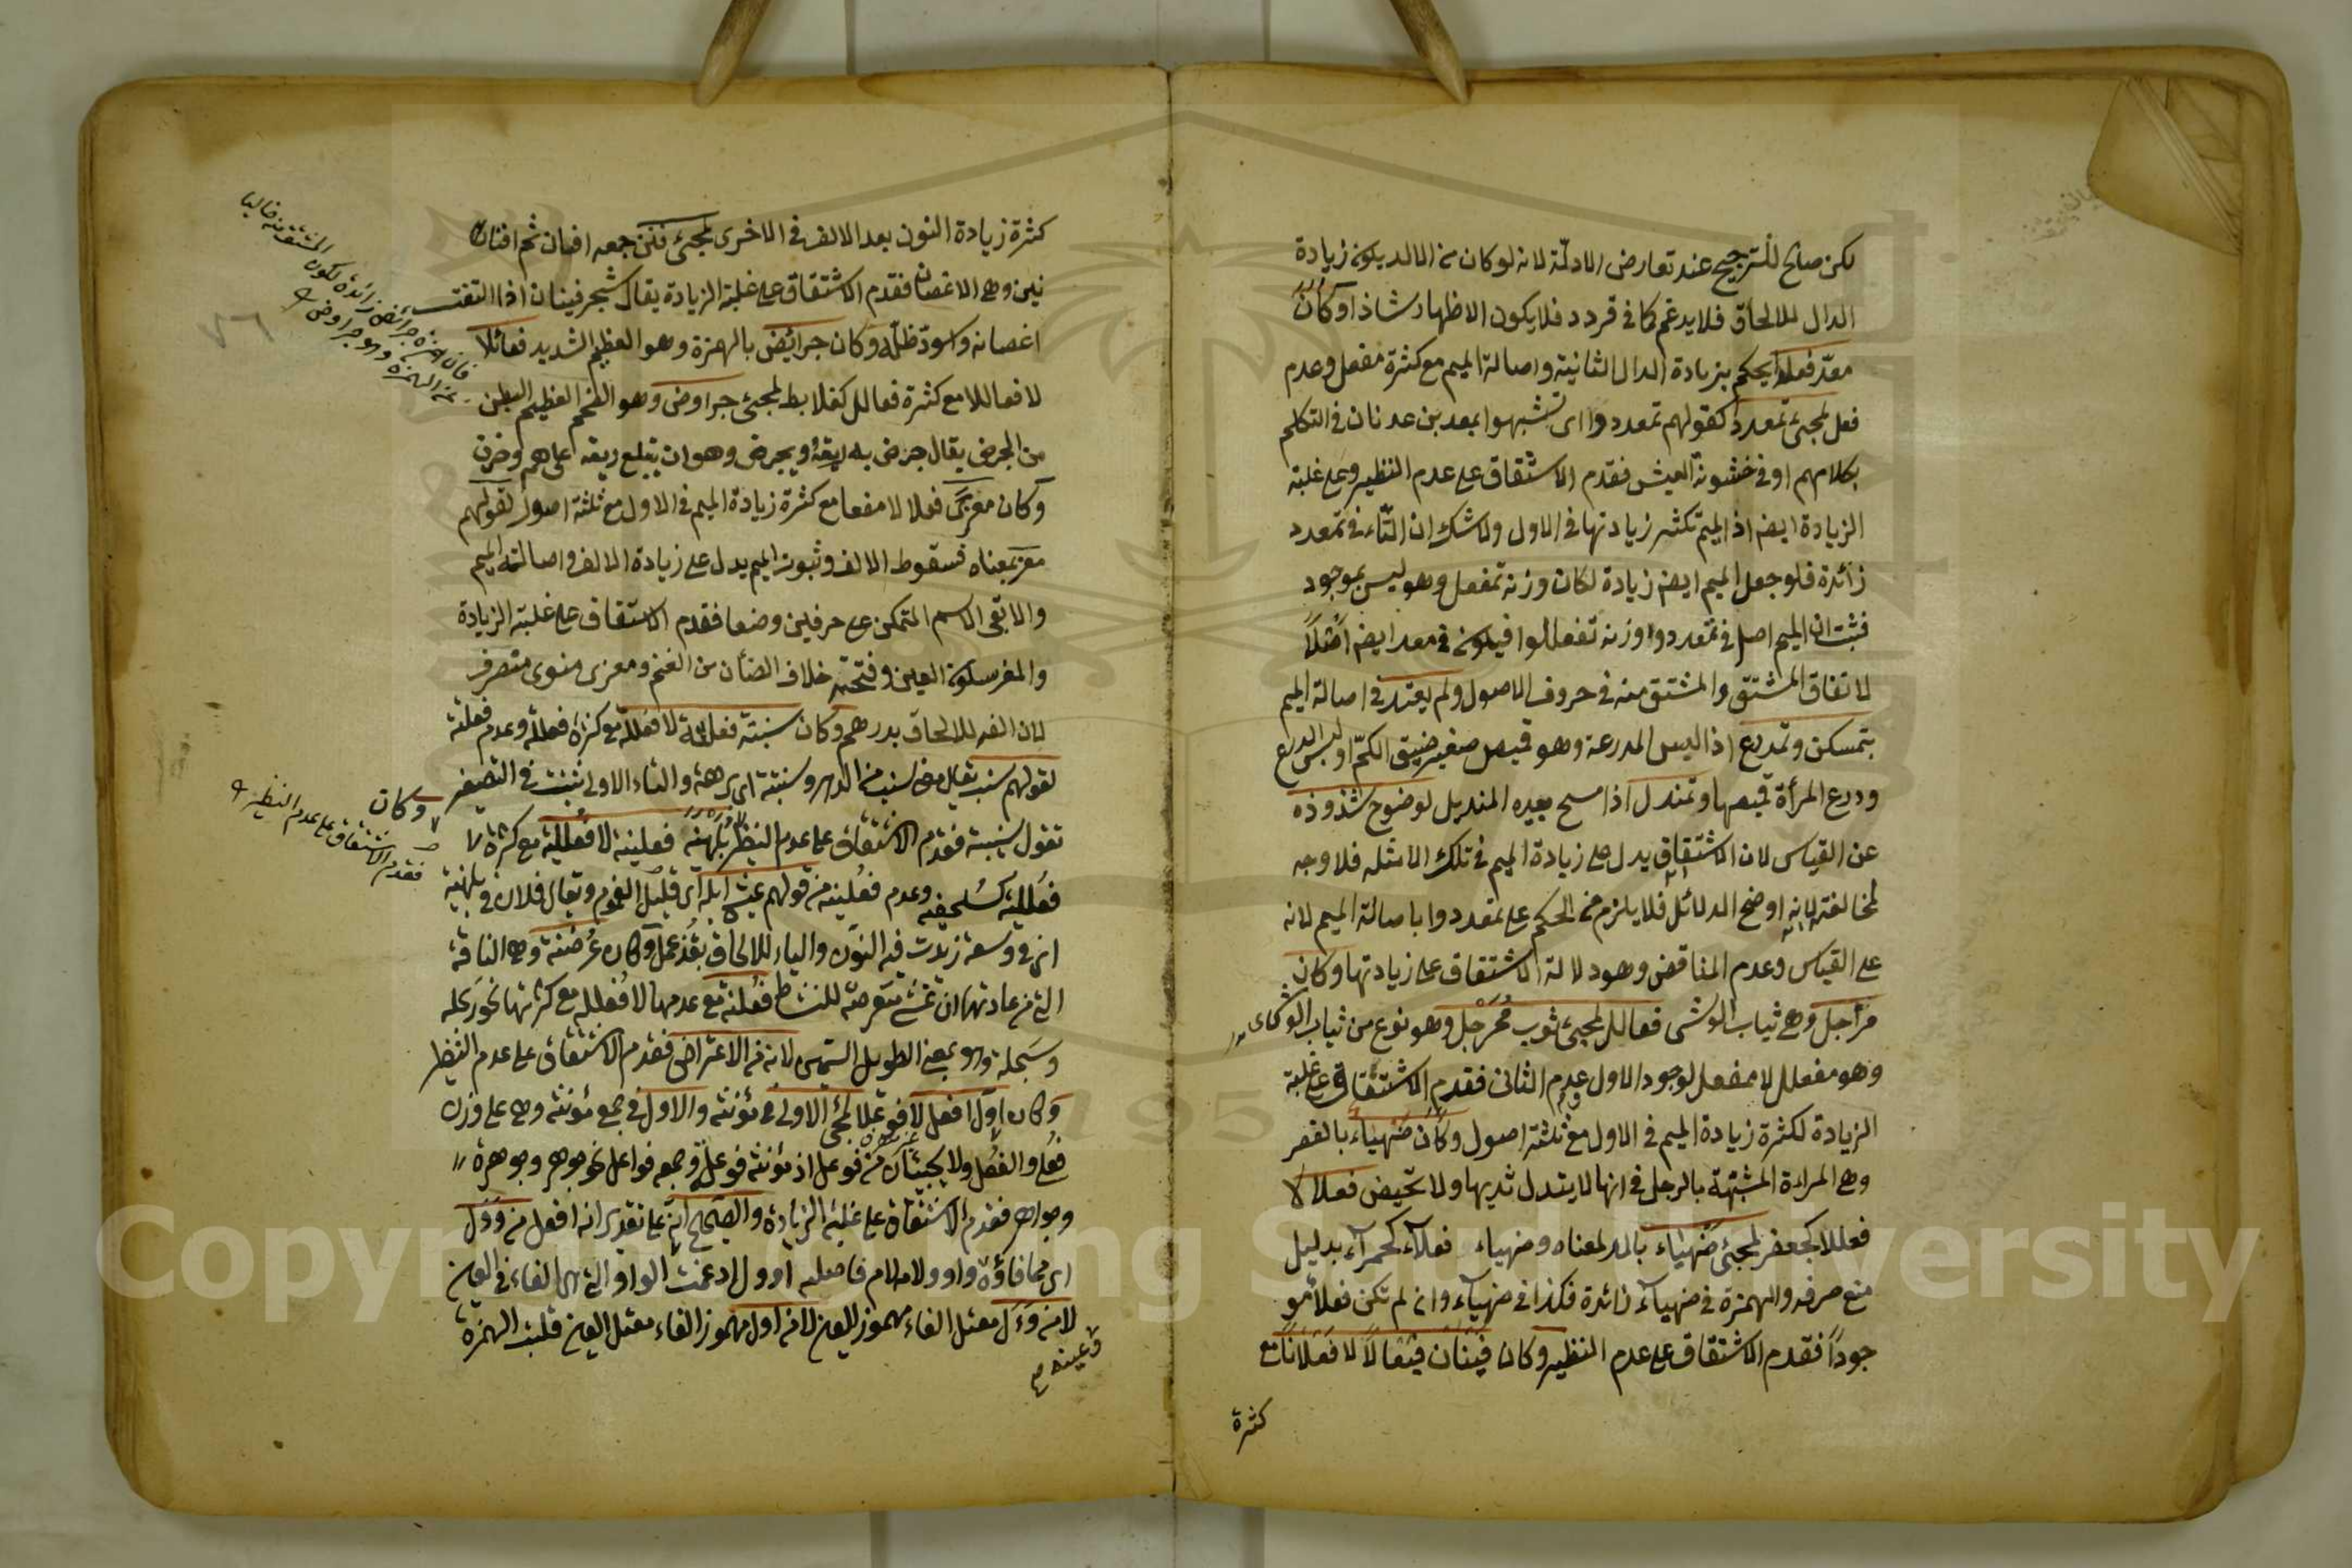 لكن صالح للترجيح عند تعارض الادلّة لانه لو كان من المالد يكون زيادة
الدال للالحاق فلا يدغم كما في قردد فلا يكون الاظهار شاذا وكان
معدّ فعلا يحكم بزيادة الدال الثانية واصالة الميم مع كثرة مفعل وعدم
فعل لمجئ تمعدد كقولهم تمعددوا اى تشبهوا بمعد بن عدنان في التكلم
بكلامهم او في خشونة العيش فقدم الاشتقاق على عدم النظير وعلى غلبة
الزيادة ايضا اذ الميم تكثر زيادتها في الاول ولا شك ان التاء في تمعدد
زائدة فلو جعل الميم ايضا زيادة لكان وزنه تمفعل وهو ليس بموجود
فثبت ان الميم اصل في تمعددوا وزنه تفعللوا فيكون في معد ايضا اصلاً
لاتفاق المشتق والمشتق منه في حروف الاصول ولم يعتد في اصالة الميم
بتمسكن وتمدرع اذا لبس المدرعة وهو قميص صغير ضيق الكمّ او لبس الدرع
ودرع المرأة قميصها وتمندل اذا مسح بيده المنديل لوضوح شذوذه
عن القياس لان الاشتقاق يدل على زيادة الميم في تلك الامثله فلا وجه
لمخالفته لانه اوضح الدلائل فلا يلزم من الحكم على تمعددوا باصالة الميم لانه
على القياس وعدم المناقض وهو دلالة الاشتقاق على زيادتها وكان
مراجل وهى ثياب الوشى فعالل لمجئ ثوب مُمَرْجَل وهو نوع من ثياب الوشى
وهو مفعلل لا ممفعل لوجود الاول وعدم الثاني فقدم الاشتقاق على غلبة
الزيادة لكثرة زيادة الميم في الاول مع ثلثة اصول وكان ضَهْيَاء بالقصر
وهى المراءة المشبّهة بالرجل في انها لا يتدل ثديها ولا تحيض فعلا لا
فعللا كجعفر لمجئ ضَهْيَاء بالمد لمعناه وضهياء فعلآء كحمرآء بدليل
منع صرفه والهمزة في ضهيآء زائدة فكذا في ضهيآء وان لم تكن فعلأ مو
جوداً فقدم الاشتقاق على عدم النظير وكان فَيْنَان فيعالاً لا فَعْلاناً مع
كثرة
كثرة زيادة النون بعد الالف في الاخرى لمجئ فنن جمعه افنان ثم افنان
نين وهى الاغصان فقدم الاشتقاق على غلبة الزيادة يقال شجر فينان اذا التفت
اغصانه واسودّ ظلّه وكان جرائض بالهمزة وهو العظيم الشديد فعائلا
لا فعاللا مع كثرة فعالل كعلابط لمجئ جراوض وهو الضخم العظيم البطن
من الجرض يقال جرض بريقه ويجرض وهو ان يبتلع ريقه على هم وحزن
وكان معزًى فعلا لا مفعلا مع كثرة زيادة الميم في الاول مع ثلثة اصول لقولهم
معز بمعناه فسقوط الالف وثبوت الميم يدل على زيادة الالف واصالة الميم
والا بقى الاسم المتمكن على حرفين وضعا فقدم الاشتقاق على غلبة الزيادة
والمعز بسكون العين وفتحته خلاف الضأن من الغنم ومعزى منوى متصرف
لان الفه للالحاق بدرهم وكان سنبتة فعلتة لا فعللة مع كثرة فعللة وعدم فعلتة
لقولهم سنب يقال مضى سنب من الدهر وسنبتة اى برهة والتاء الاولى تثبت في التصغير
تقول سنيبتة فقدم الاشتقاق على عدم النظير بُلَهْنِية فعلنية لا فُعَلِّلِية مع كثرة
فعللية كسلحفية وعدم فعلنية من قولهم عيش ابله اى قليل الغموم ويقال فلان في بلهنية
اى في وسعة زيدت فيه النون والياء للالحاق بقذعمل وكان عُرَضْنة وهى الناقة
التى من عادتها ان تمشى معترضة للنشاط فعلنة مع عدمها لا فعللة مع كثرتها نحو رِبحله
وسبحلة وهو بمعنى الطويل السمين لانه من الاعتراض فقدم الاشتقاق على عدم النظير
وكان اوّل افعل لا فوعلا لمجئ الاولى في مؤنثه والاول في جمع مؤنثه وهى على وزن
فعلى والفعل ولا يجيئان من فوعل اذ مؤنثه فوعلة وجمعه فواعل نحو جوهر وجوهرة
وجواهر فقدم الاشتقاق على غلبة الزيادة والصحيح انه على تقدير انه افعل من وَوَل
اى مما فاؤه واو ولامه لام فاصله اوول ادغمت الواو التى هى الفاء في العين
لا من وَءَل معتل الفاء مهموز العين لا من اول مهموز الفاء معتل العين قلبت الهمزة
وعينه
فان همزة جرائض زائدة لكون المشتق منه خاليا
عن الهمزة وهو جراوض
وكان
فقدم الاشتقاق على عدم النظير
٧٦
Copyright © King Saud University
1957